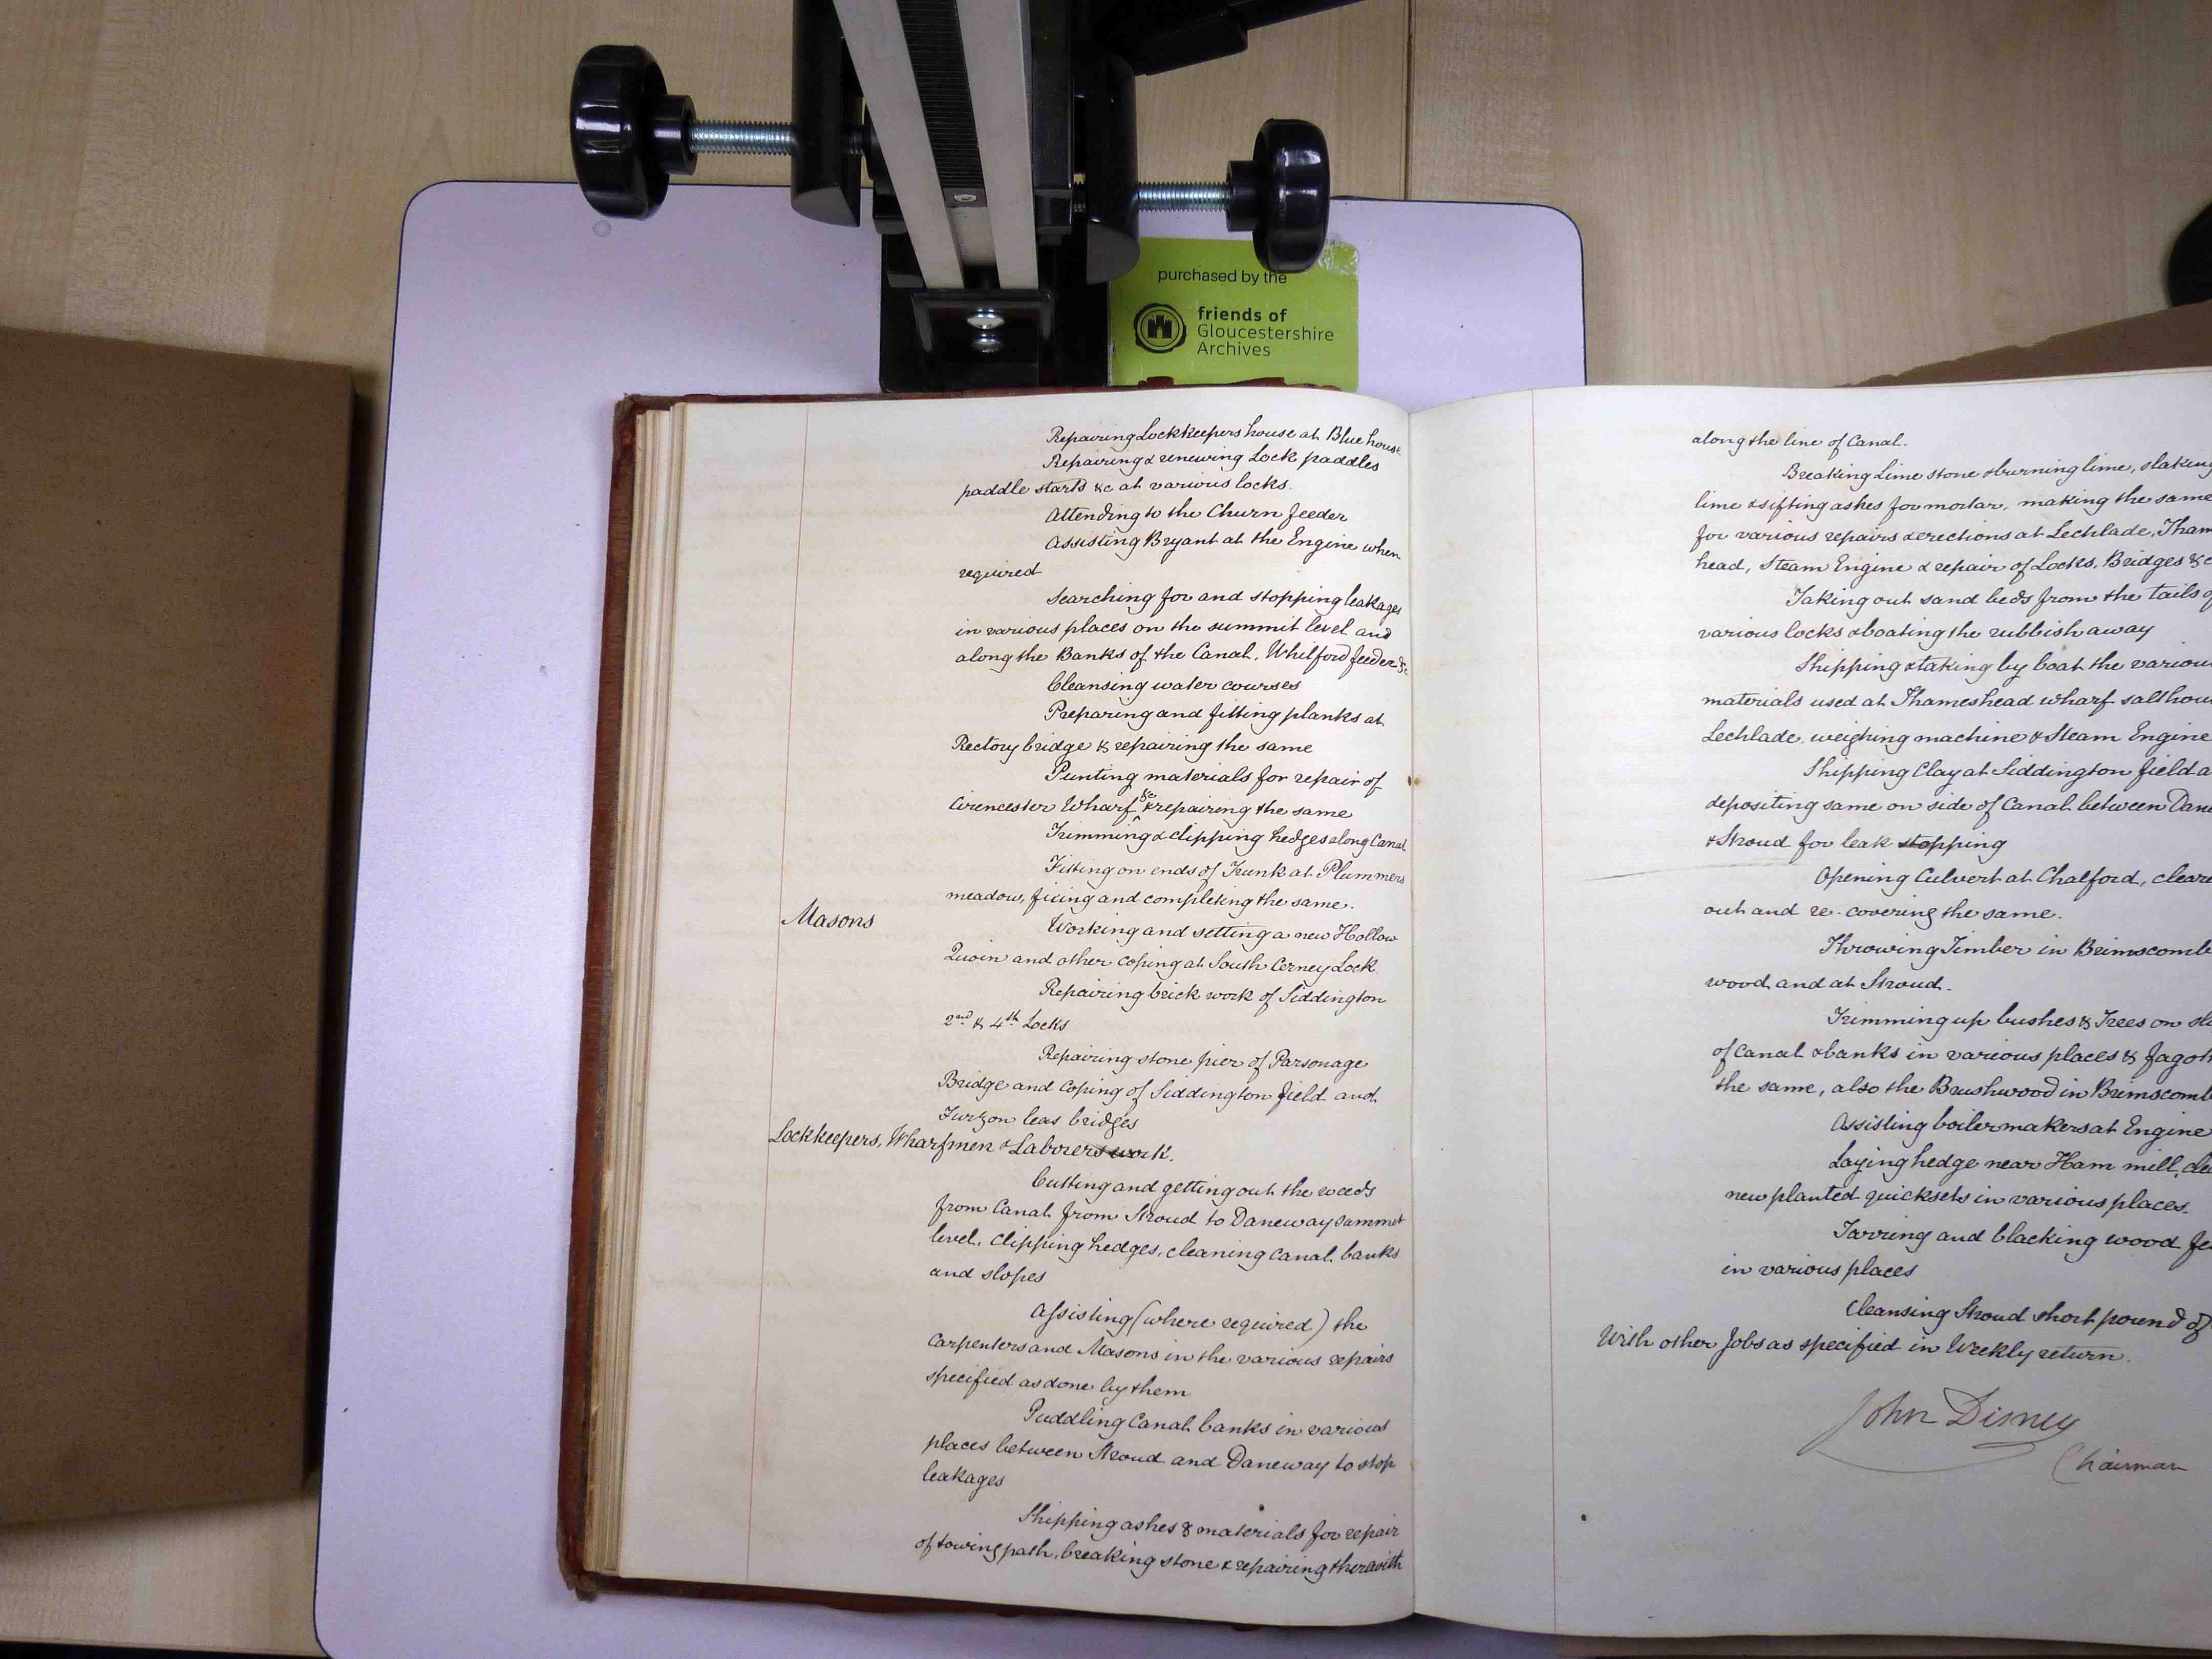 purchased by the
friends of
Gloucestershire
Archives
Repairing Lockkeepers house at Blue house
Repairing & renewing Lock paddles
paddle starts &c at various locks.
Attending to the Churn feeder
Assisting Bryant at the Engine when
required
Searching for and stopping leakages
in various places on the summit level and
along the Banks of the Canal, Whilford feeder &c
Cleansing water courses
Preparing and fitting planks at
Rectory bridge & repairing the same
Punting materials for repair of
Cirencester Wharf &c & repairing the same
Trimming & clipping hedges along Canal
Fitting on ends of Trunk at Plummers
meadow, fixing and completing the same.
Masons
Working and setting a new Hollow
Quoin and other coping at South Cerney Lock
Repairing brick work of Siddington
2nd & 4th Locks
Repairing stone pier of Parsonage
Bridge and Coping of Siddington field and
Furzon leas bridges
Lockkeepers, Wharfmen & Laborers work.
Cutting and getting out the weeds
from Canal from Stroud to Daneway summit
level, Clipping hedges, cleaning Canal banks
and slopes
Assisting (where required) the
Carpenters and Masons in the various repairs
specified as done by them
Puddling Canal banks in various
places between Stroud and Daneway to stop
leakages
Shipping ashes & materials for repair
of towing path, breaking stone & repairing therewith
along the line of Canal.
Breaking Lime stone & burning lime, slaking
lime & sifting ashes for mortar, making the same
for various repairs & erections at Lechlade, Tham
head, Steam Engine & repair of Locks, Bridges &c
Taking out sand beds from the tails of
various locks & boating the rubbish away
Shipping & taking by boat the various
materials used at Thameshead wharf salthou
Lechlade, weighing machine & Steam Engine
Shipping Clay at Siddington field a
depositing same on side of Canal between Dane
& Stroud for leak stopping
Opening Culvert at Chalford, clear
out and re-covering the same.
Throwing Timber in Brimscomb
wood and at Stroud.
Trimming up bushes & Trees on sl
of Canal & banks in various places & fagot
the same, also the Brushwood in Brimscomb
Assisting boilermakers at Engine
Laying hedge near Ham mill, cle
new planted quicksets in various places.
Tarring and blacking wood fe
in various places
Cleansing Stroud short pound of
With other Jobs as specified in Weekly return.
John Disney
Chairman